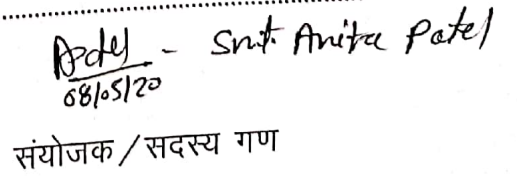 - Smt. Anita Patel
08/05/20
संयोजक / सदस्य गण